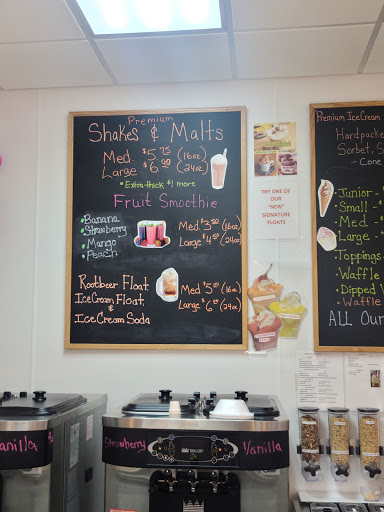 Premium
Shakes & Malts
Med. $5.75 (16oz)
Large $6.00 (24oz)
• Extra-thick $1 more
Fruit Smoothie
• Banana
• Strawberry
• Mango
• Peach
Med $3.50 (16oz)
Large $4.50 (24oz)
Rootbeer Float
Ice Cream Float,
&
Ice Cream Soda
Med $5.00 (16oz)
Large $6.00 (24oz)
TRY ONE OF
OUR
"NEW"
SIGNATURE
FLOATS
Premium Ice Cream
Hardpacke
Sorbet, S
- Cone
• Junior -
• Small -
• Med -
• Large -
• Toppings
• Waffle
• Dipped
• Waffle
ALL Our
Vanilla
Strawberry
TAYLOR
Vanilla